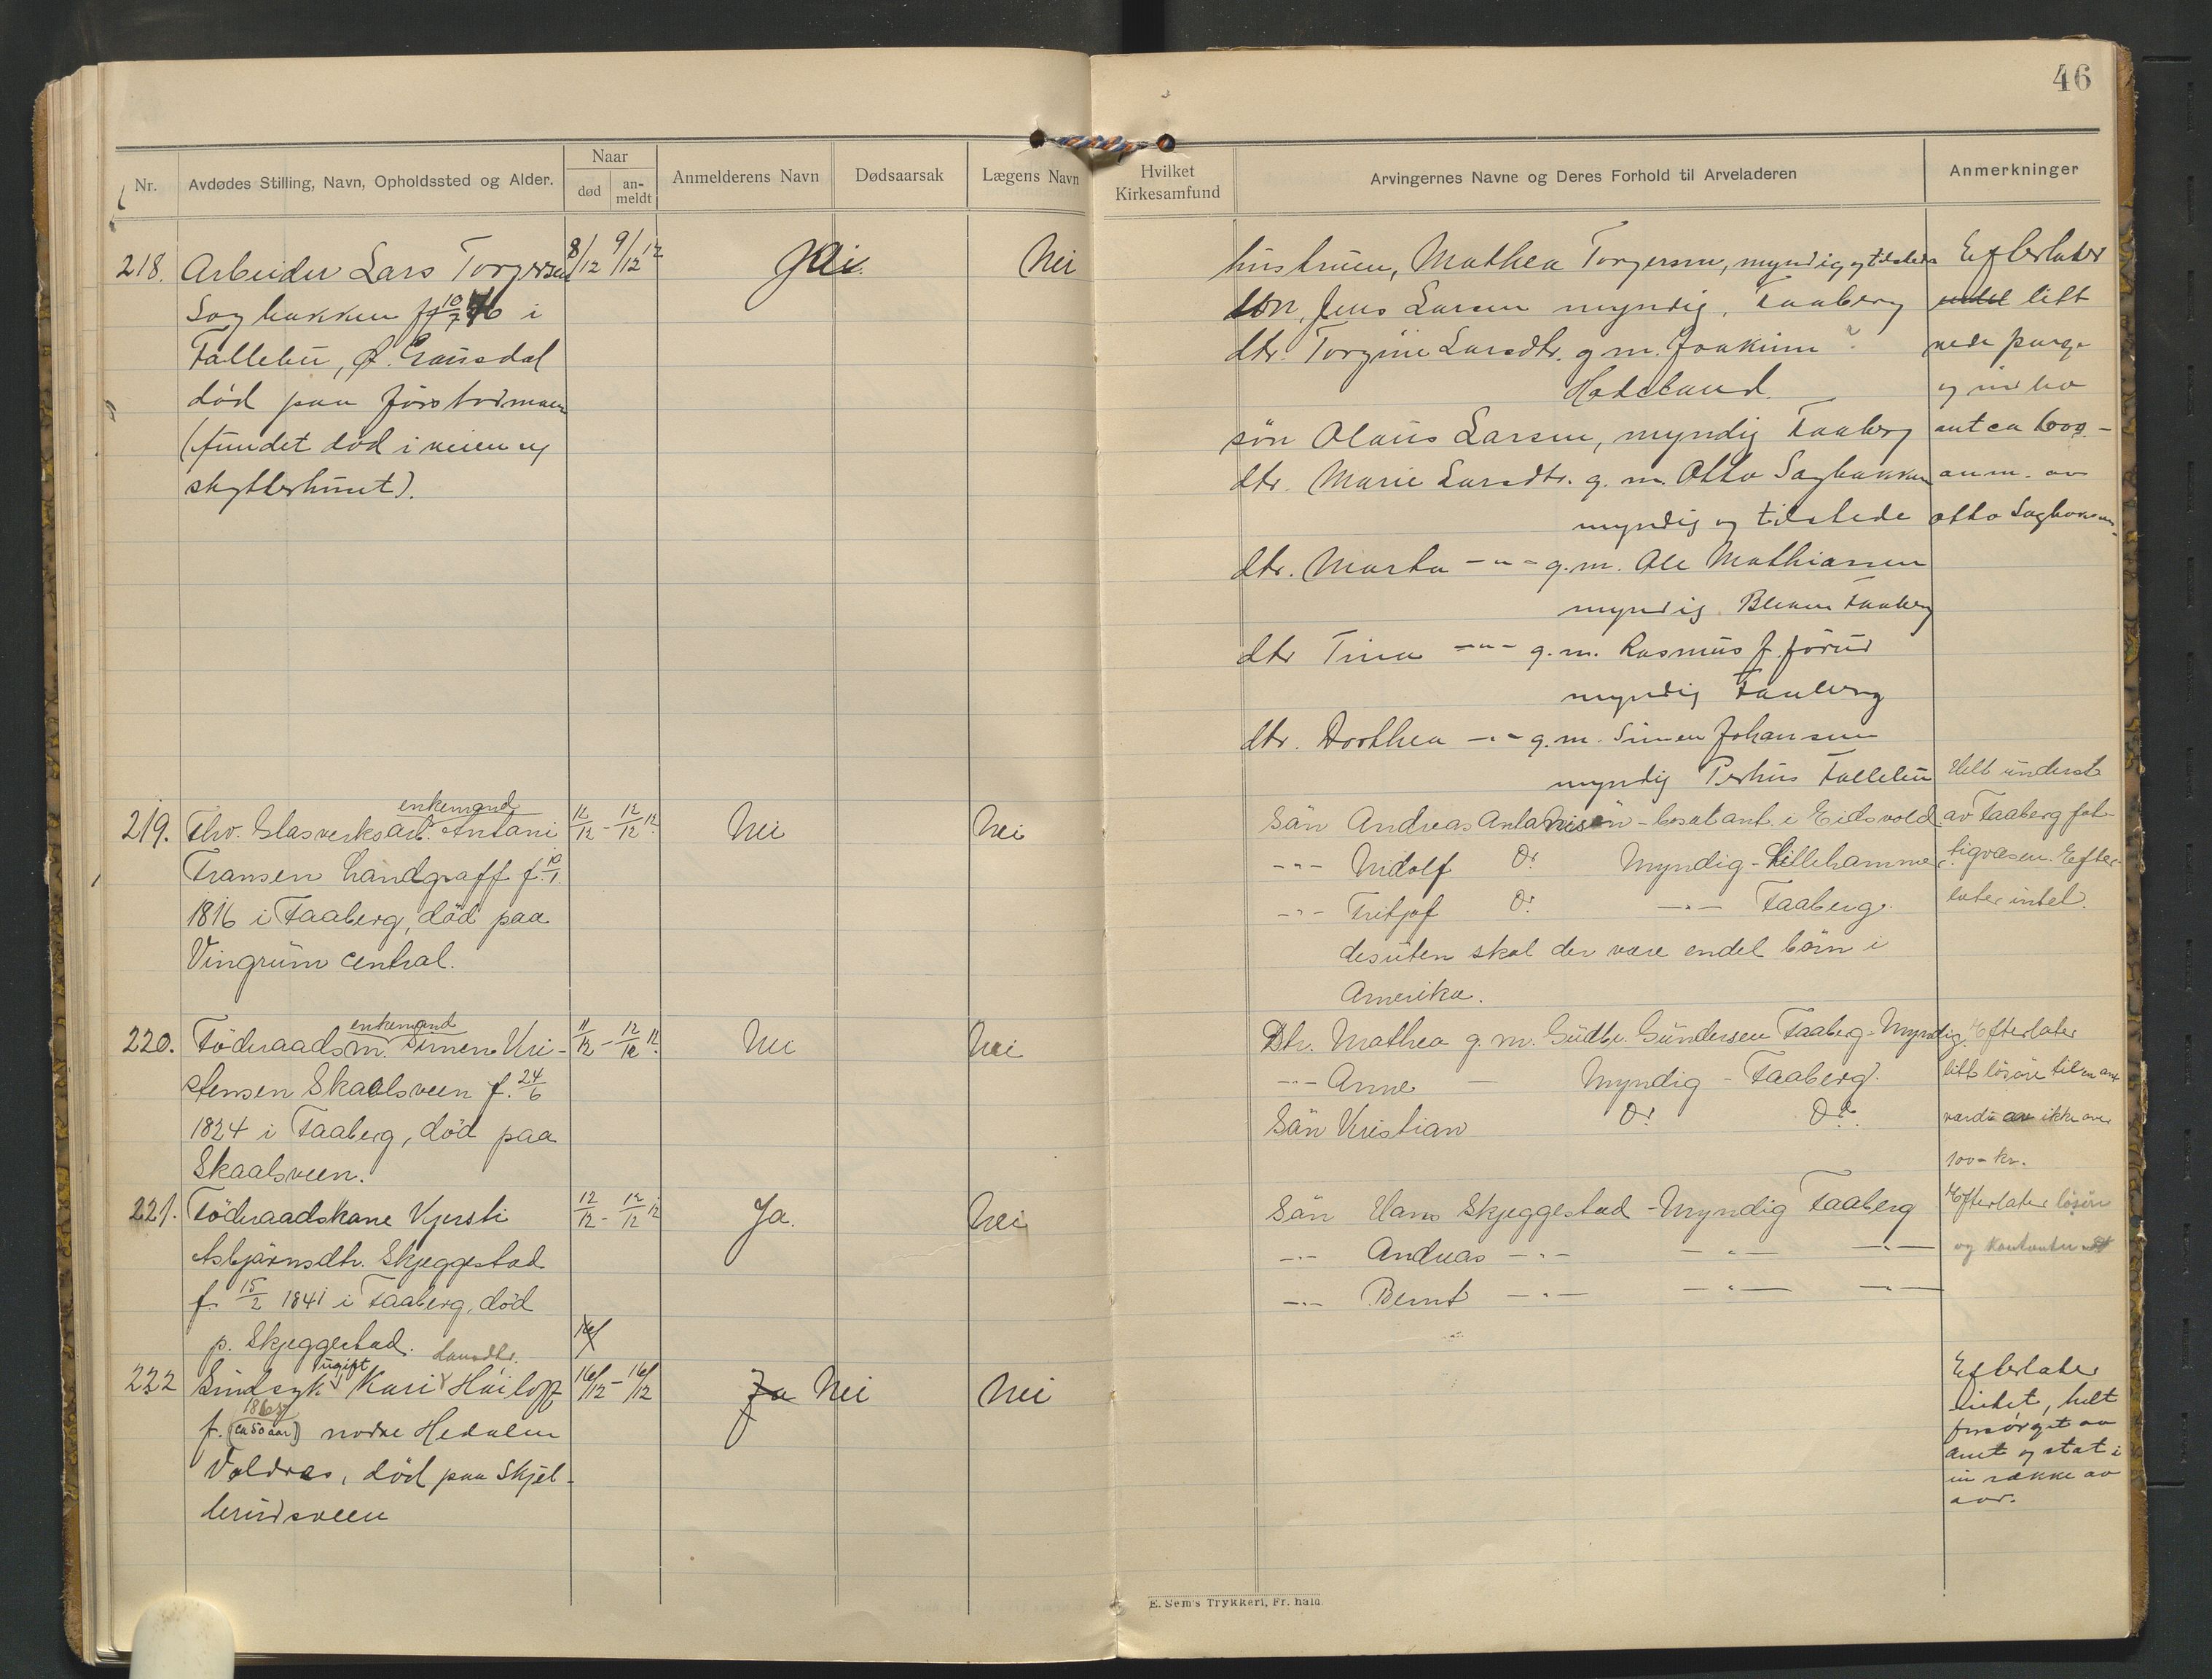 46
Nr.
Avdødes Stilling, Navn, Opholdssted og Alder.
Naar
død
an-
meldt
Anmelderens Navn
Dødsaarsak
Lægens Navn
Hvilket
Kirkesamfund
Arvingernes Navne og Deres Forhold til Arveladeren
Anmerkninger
218. Arbeider Lars Torgersen 8/12 9/12 12 Nei
Sagbakken f 10/7 46 i
Follebu, Ø. Gausdal
død paa
(fundet død i veien ved
skytterhuset).
hustruen, Mathea Torgersen, myndig og tilstede
søn, Jens Larsen myndig, Faaberg
dtr. Torgine Larsdtr. g. m. Joakim ?
Hadeland.
søn Olaus Larsen, myndig Faaberg
dtr. Marie Larsdtr. g. m. Otto Sagbakken
myndig og tilstede
dtr. Marta -"- g. m. Ole Mathiassen
myndig Faaberg
dtr Tina -"- g. m. Rasmus J. Jørud
myndig Faaberg
dtr. Dorthea -"- g. m. Simen Johansen
myndig Perhus Follebu
Efterlater
endel litt
rede penge
og indbo
ant ca 600.-
anm. av
Otto Sagbakken
219. Fhv. Glasverksarb. enkemand Antoni 12/12 - 12/12 12. Nei Nei
Fransen Landgraff f. 10/1
1816 i Faaberg, død paa
Vingrum central.
Sön Andreas Antonisön - bosat ant. i Eidsvold
-"- Nidolf Do Myndig - Lillehammer
-"- Fritjof Do -"- Faaberg.
desuten skal der være endel börn i
Amerika.
Helt underst.
av Faaberg fat-
tigvæsen. Efter-
later intet.
220. Föderaadsm. enkemand Simen Kri- 11/12 - 12/12 12. Nei Nei
stensen Skaalsveen f. 24/6
1824 i Faaberg, död paa
Skaalsveen.
Dtr. Mathea g. m. Gudbr. Gundersen Faaberg - Myndig.
-"- Anne - Myndig - Faaberg.
Sön Kristian Do Do.
Efterlater
litt lösöre til en ant
værdi av ikke over
100 - kr.
221. Föderaadskone Kjersti 12/12 - 12/12 12 Ja. Nei
Asbjörnsdtr. Skjeggestad
f. 15/2 1841 i Faaberg, död
p. Skjeggestad.
Sön Hans Skjeggestad - Myndig Faaberg
-"- Andreas -"- -"- -"-
-"- Bernt -"- -"- -"-
Efterlater lösöre
og kontanter
222 Sindsyk ugift Kari Larsdtr. 16/12 - 16/12 Ja Nei Nei
f. 186 (ca 50 aar) nordre Hedalen
Valdres, död paa Skjel-
lerudsveen
Efterlater
intet, helt
forsörget av
amt og stat i
en række av
aar.
E. Sem's Trykkeri, Fr.hald.